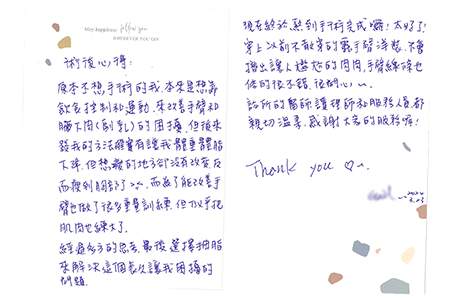 May happiness follow you
WHEREVER YOU GO
術後心得:
原本不想手術的我,本來是想靠
飲食控制和運動,來改善手臂和
腋下肉(副乳)的困擾,但後來
發我的方法確實有讓我體重體脂
下降,但想瘦的地方卻沒有改變反
而瘦到胸部了>..<而為了能改善手
臂也做了很多重量訓練,但似乎把
肌肉也練大了。
經過多方的思考,最後選擇抽脂
來解決這個長久讓我困擾的
問題。
現在終於熬到手術完成囉!太好了!
穿上以前不敢穿的露手臂洋裝,不會
擠出讓人尷尬的肉肉,手臂線條也
修的很不錯,很開心~
診所的醫師護理師和服務人員都
親切溫柔,感謝大家的服務喔!
Thank you ♡~